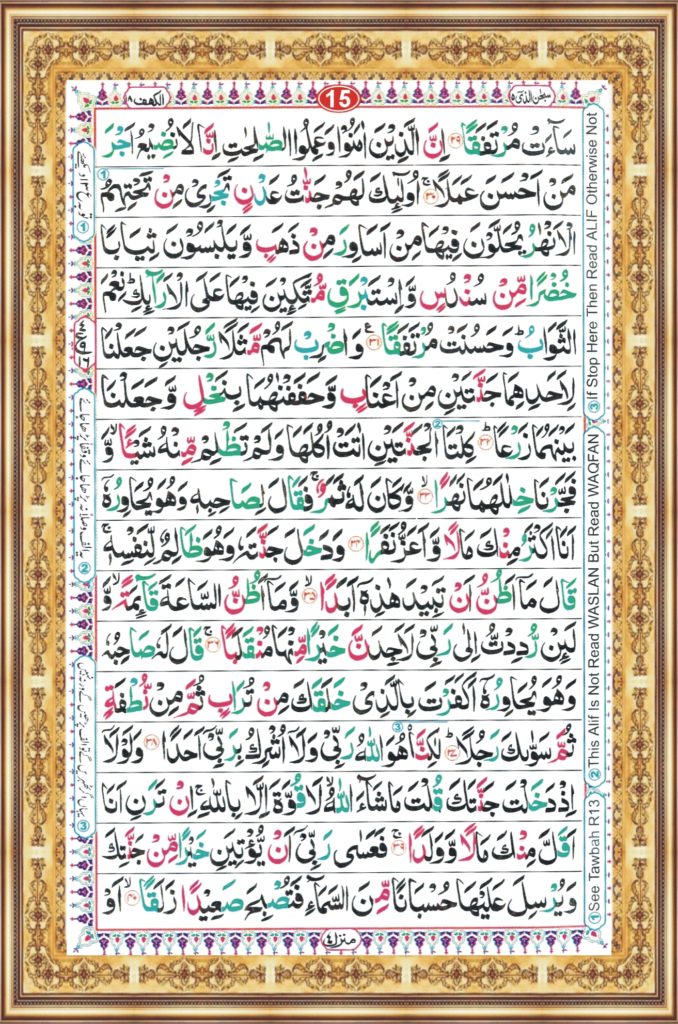 سبحٰن الذی ۱۵
15
الکهف ۱۸
سَآءَتْ مُرْتَفَقًا ۲۹ اِنَّ الَّذِیْنَ اٰمَنُوْا وَعَمِلُوا الصّٰلِحٰتِ اِنَّا لَا نُضِیْعُ اَجْرَ
مَنْ اَحْسَنَ عَمَلًا ۚ ۳۰ اُولٰٓئِكَ لَهُمْ جَنّٰتُ عَدْنٍ تَجْرِیْ مِنْ تَحْتِهِمُ
الْاَنْهٰرُ یُحَلَّوْنَ فِیْهَا مِنْ اَسَاوِرَ مِنْ ذَهَبٍ وَّیَلْبَسُوْنَ ثِیَابًا
خُضْرًا مِّنْ سُنْدُسٍ وَّاِسْتَبْرَقٍ مُّتَّكِـِٕیْنَ فِیْهَا عَلَی الْاَرَآىِٕكِ ؕ نِعْمَ
الثَّوَابُ ؕ وَحَسُنَتْ مُرْتَفَقًا ۳۱ ع وَاضْرِبْ لَهُمْ مَّثَلًا رَّجُلَیْنِ جَعَلْنَا
لِاَحَدِهِمَا جَنَّتَیْنِ مِنْ اَعْنَابٍ وَّحَفَفْنٰهُمَا بِنَخْلٍ وَّجَعَلْنَا
بَیْنَهُمَا زَرْعًا ؕ ۳۲ كِلْتَا الْجَنَّتَیْنِ اٰتَتْ اُكُلَهَا وَلَمْ تَظْلِمْ مِّنْهُ شَیْـًٔا ۙ وَّ
فَجَّرْنَا خِلٰلَهُمَا نَهَرًا ۙ ۳۳ وَّكَانَ لَهٗ ثَمَرٌ ۚ فَقَالَ لِصَاحِبِهٖ وَهُوَ یُحَاوِرُهٗۤ
اَنَا اَكْثَرُ مِنْكَ مَالًا وَّاَعَزُّ نَفَرًا ۳۴ وَدَخَلَ جَنَّتَهٗ وَهُوَ ظَالِمٌ لِّنَفْسِهٖ ۚ
قَالَ مَاۤ اَظُنُّ اَنْ تَبِیْدَ هٰذِهٖۤ اَبَدًا ۙ ۳۵ وَّمَاۤ اَظُنُّ السَّاعَةَ قَآىِٕمَةً ۙ وَّ
لَىِٕنْ رُّدِدْتُّ اِلٰی رَبِّیْ لَاَجِدَنَّ خَیْرًا مِّنْهَا مُنْقَلَبًا ۚ ۳۶ قَالَ لَهٗ صَاحِبُهٗ
وَهُوَ یُحَاوِرُهٗۤ اَكَفَرْتَ بِالَّذِیْ خَلَقَكَ مِنْ تُرَابٍ ثُمَّ مِنْ نُّطْفَةٍ
ثُمَّ سَوّٰىكَ رَجُلًا ؕ ۳۷ لٰكِنَّا۠ هُوَ اللّٰهُ رَبِّیْ وَلَاۤ اُشْرِكُ بِرَبِّیْۤ اَحَدًا ۳۸ وَلَوْلَاۤ
اِذْ دَخَلْتَ جَنَّتَكَ قُلْتَ مَا شَآءَ اللّٰهُ ۙ لَا قُوَّةَ اِلَّا بِاللّٰهِ ۚ اِنْ تَرَنِ اَنَا
اَقَلَّ مِنْكَ مَالًا وَّوَلَدًا ۚ ۳۹ فَعَسٰی رَبِّیْۤ اَنْ یُّؤْتِیَنِ خَیْرًا مِّنْ جَنَّتِكَ
وَیُرْسِلَ عَلَیْهَا حُسْبَانًا مِّنَ السَّمَآءِ فَتُصْبِحَ صَعِیْدًا زَلَقًا ۙ ۴۰ اَوْ
①See Tawbah R13 ②This Alif Is Not Read WASLAN But Read WAQFAN ③If Stop Here Then Read ALIF Otherwise Not
منزل ۴